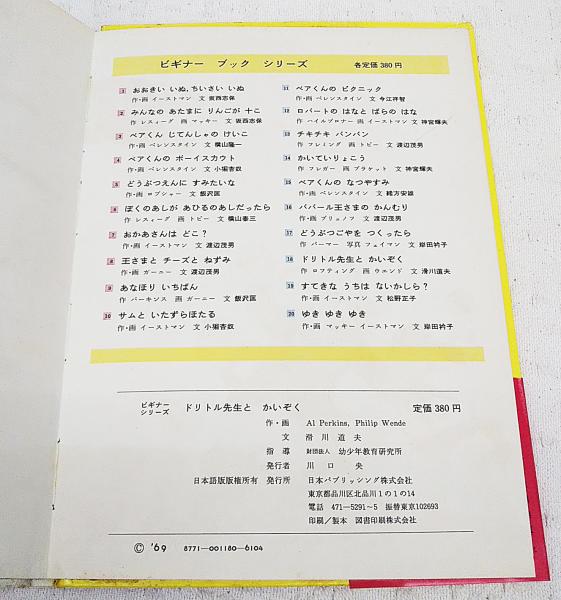 ビギナー ブック シリーズ 各定価 380 円
1 おおきい いぬ、ちいさい いぬ
作・画 イーストマン 文 坂西志保
2 みんなの あたまに りんごが 十こ
作 レスィーグ 画 マッキー 文 坂西志保
3 ベアくん じてんしゃの けいこ
作・画 ベレンスタイン 文 横山隆一
4 ベアくんの ボーイスカウト
作・画 ベレンスタイン 文 小堀杏奴
5 どうぶつえんに すみたいな
作・画 ロプシャー 文 飯沢匡
6 ぼくのあしが あひるのあしだったら
作 レスィーグ 画 トビー 文 横山泰三
7 おかあさんは どこ?
作・画 イーストマン 文 渡辺茂男
8 王さまと チーズと ねずみ
作・画 ガーニー 文 渡辺茂男
9 あなほり いちばん
作 パーキンス 画 ガーニー 文 飯沢匡
10 サムと いたずらほたる
作・画 イーストマン 文 小堀杏奴
11 ベアくんの ピクニック
作・画 ベレンスタイン 文 今江祥智
12 ロバートの はなと ばらの はな
作 ハイルブロナー 画 イーストマン 文 神宮輝夫
13 チキチキ バンバン
作 フレミング 画 トビー 文 渡辺茂男
14 かいていりょこう
作 フレガー 画 ブラケット 文 神宮輝夫
15 ベアくんの なつやすみ
作・画 ベレンスタイン 文 緒方安雄
16 ババール王さまの かんむり
作・画 ブリュノフ 文 渡辺茂男
17 どうぶつごやを つくったら
作 パーマー 写真 フェイマン 文 岸田衿子
18 ドリトル先生と かいぞく
作 ロフティング 画 ウエンド 文 滑川道夫
19 すてきな うちは ないかしら?
作・画 イーストマン 文 松野正子
20 ゆき ゆき ゆき
作・画 マッキー イーストマン 文 岸田衿子
ビギナー シリーズ ドリトル先生と かいぞく 定価 380 円
作・画 Al Perkins, Philip Wende
文 滑川道夫
指導 財団法人 幼少年教育研究所
発行者 川口 央
日本語版版権所有 発行所 日本パブリッシング株式会社
東京都品川区北品川1の1の14
電話 471—5291〜5 振替東京102693
印刷/製本 図書印刷株式会社
© '69 8771—001180—6104